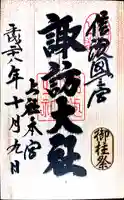 信濃國一宮
諏訪大社
上社本宮
平成廿八年十月九日
御柱祭